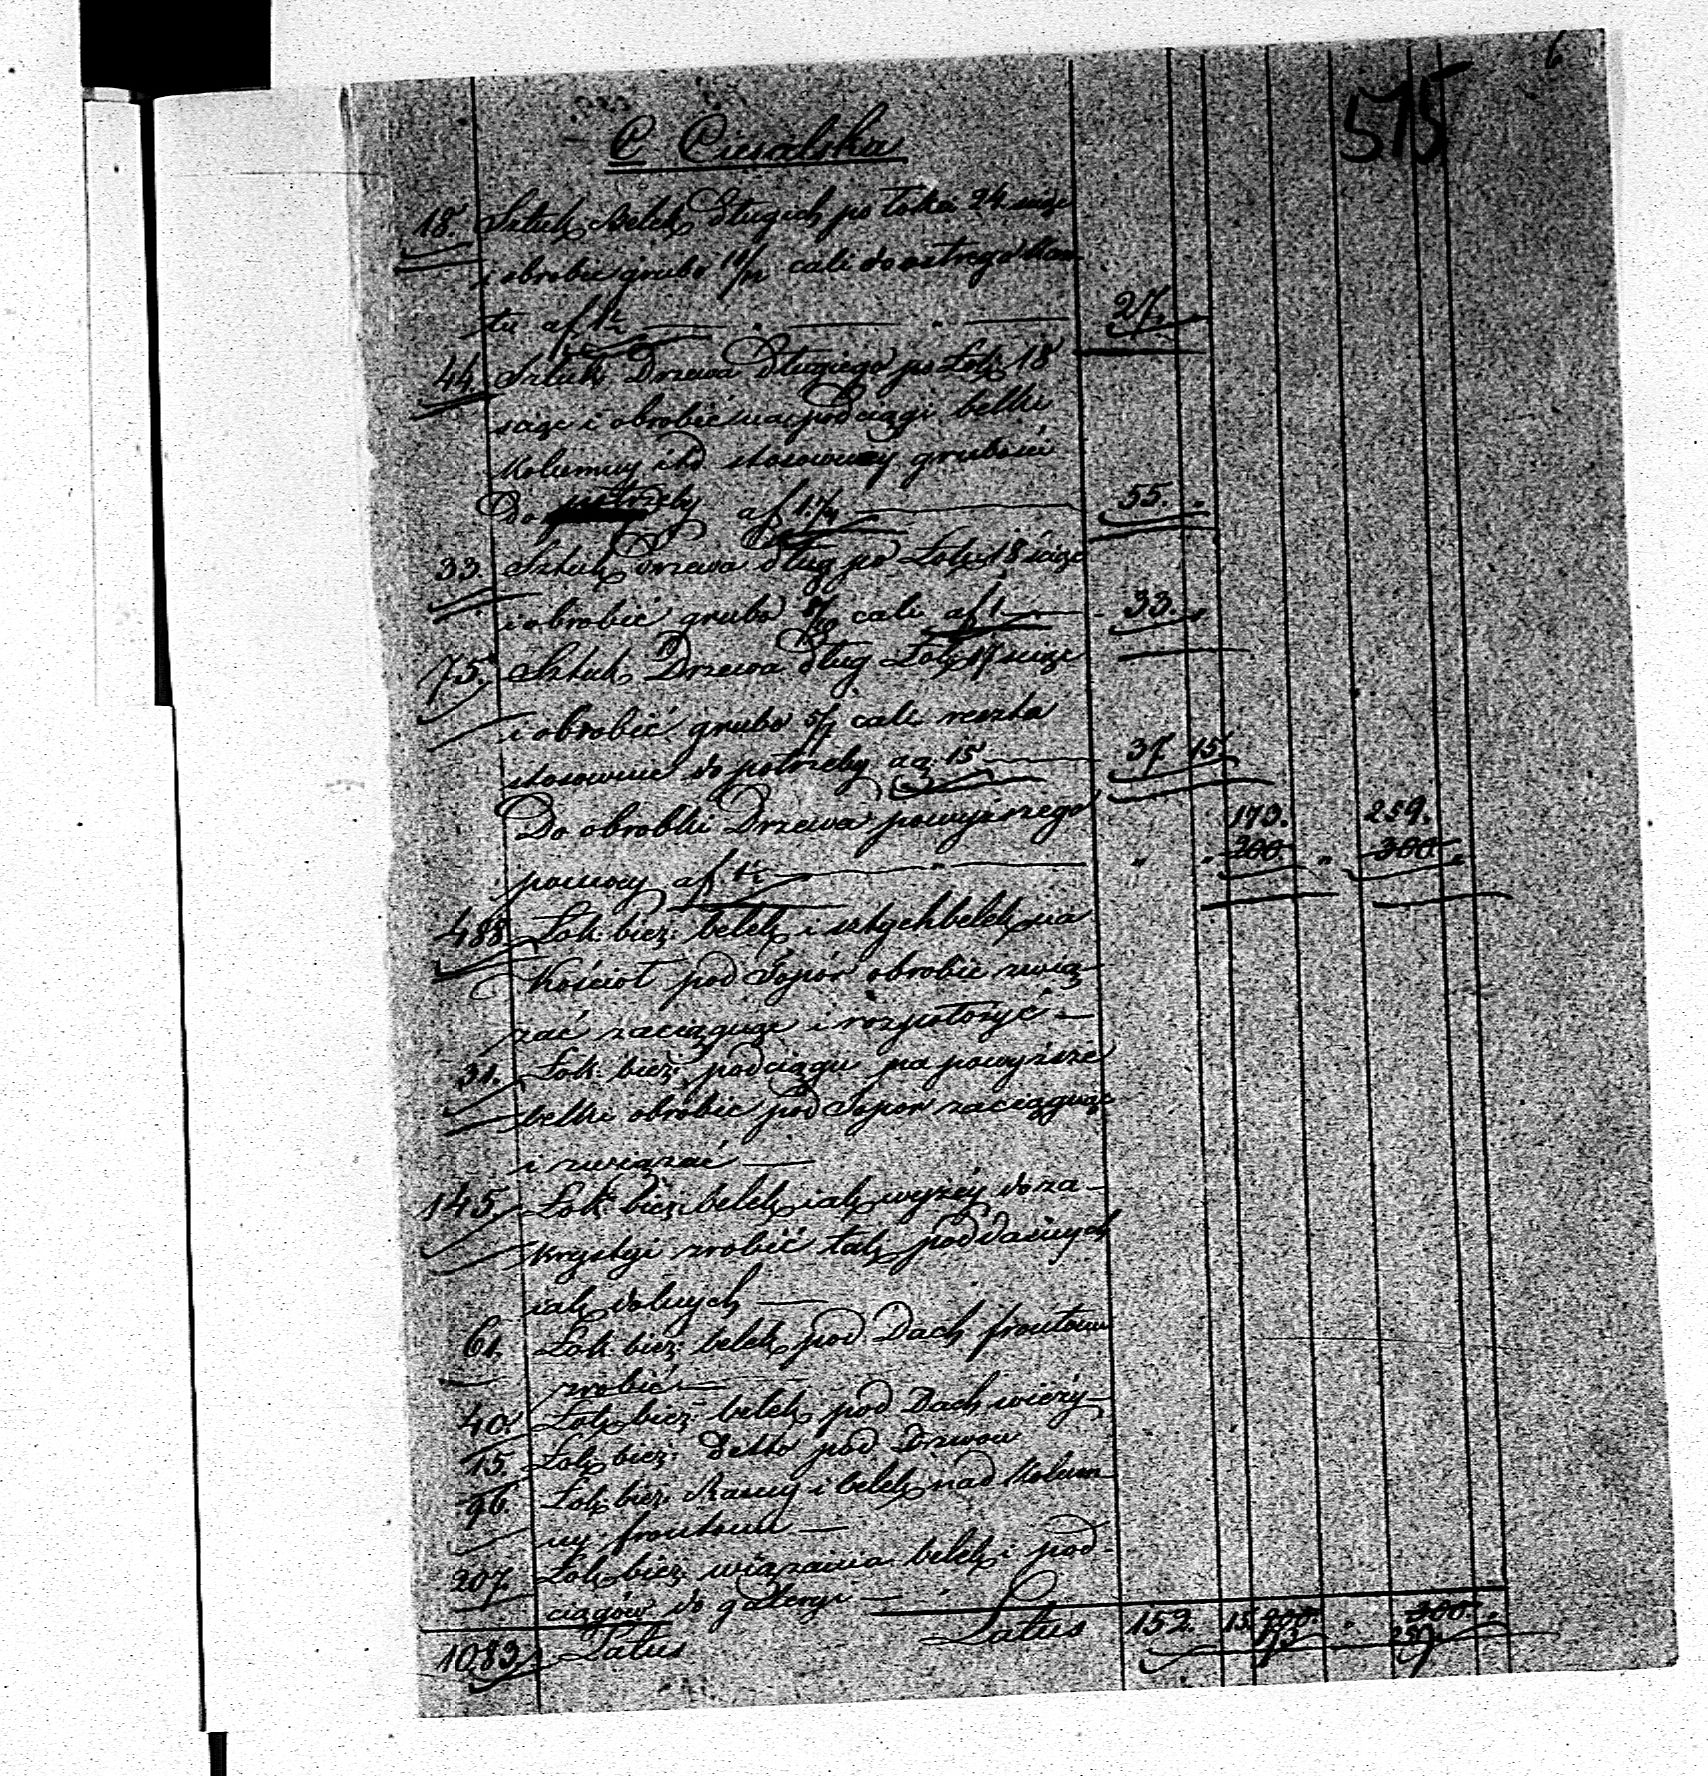 6
515
C Ciesielska
18. Sztuk belek Długich po Łokci 24 ściąć
i obrobić grubo 10/12 cali do ostrego Kan
tu af 1½ — " — " — 27. "
44. Sztuk Drzewa Długiego po Łok 18
ściąć i obrobić na podciągi belki
Kolumny itd stosowney grubości
Do potrzeby af 1¼ — 55. "
33. Sztuk Drzewa Dług po Łok 18 ściąć
i obrobić grubo 8/10 cali af 1 — 33. "
75. Sztuk Drzewa Dług Łok 17 ściąć
i obrobić grubo 5/7 cali reszta
stosownie do potrzeby ag. 15 — 37 15
Do obrobki Drzewa powyższego 173. 259.
pomocy af 1½ — " — " " 200. " 300. "
488. Łok: bież: belek i sztychbelek na
Kościoł pod Topór obrobić zwią-
zać zaciągnąć i rozpołożyć —
31. Łok: bież: podciągu na powyższe
belki obrobić pod Topor zaciągnąć
i związać —
145. Łok: bież: belek iak wyżéy do za-
krystyi zrobić tak poddasznych
iak dolnych —
61. Łok: bież: belek pod Dach frontowy
zrobić —
40. Łok: bież: belek pod Dach wieży —
15. Łok bież: Detto pod Dzwon
96. Łok bież: Ramy i belek nad Kolum
ny frontowe —
207. Łok bież: wiązania belek i pod-
ciągów do galeryi —
1083. Latus Latus 152. 15. 200. 173 " 300. " 259